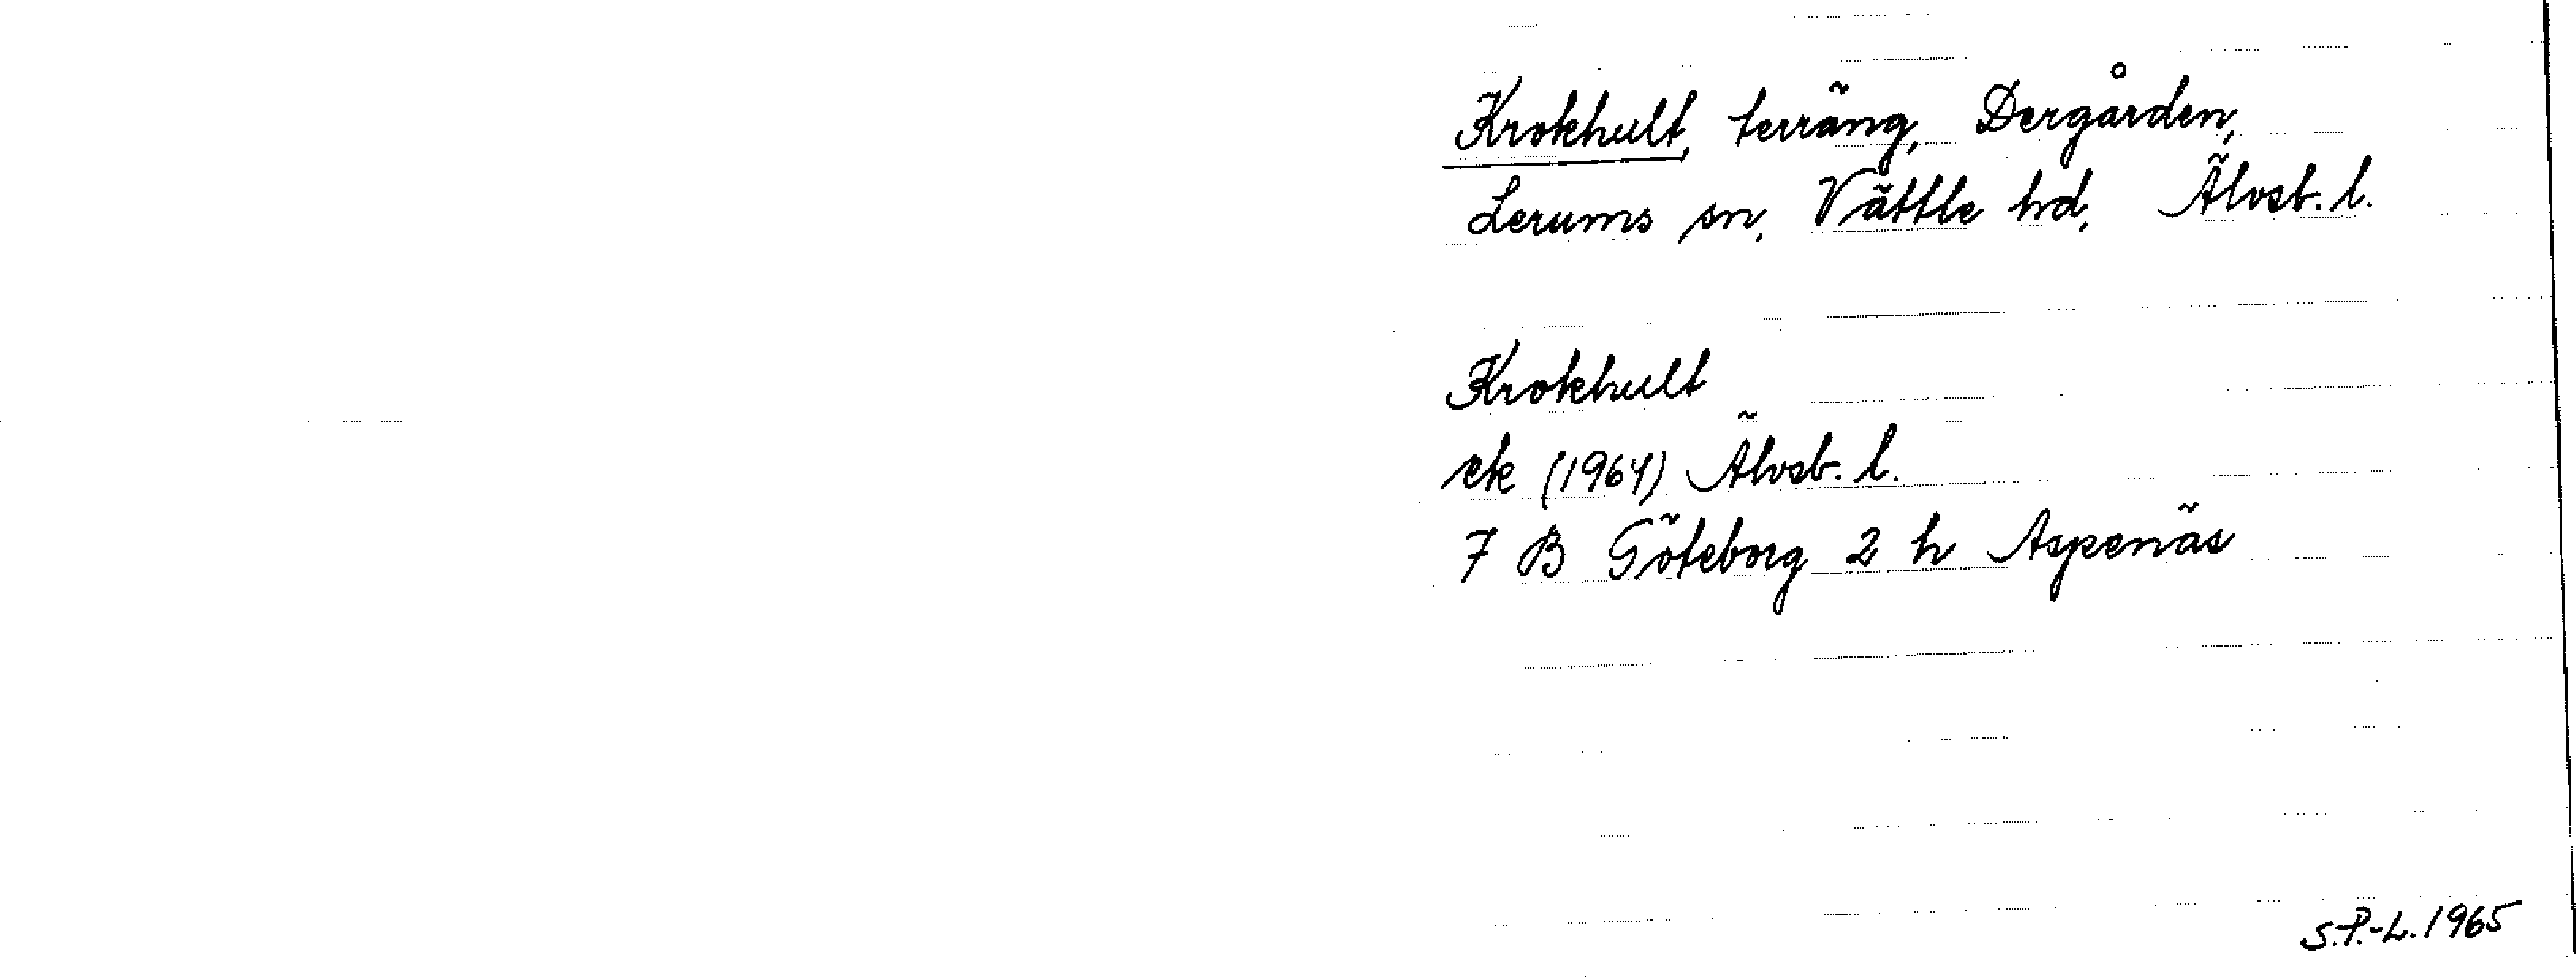 Krokhult, terräng, Dergården,
Lerums sn, Vättle hd, Älvsb. l.
Krokhult
ek (1964) Älvsb. l.
7 B Göteborg 2 h Aspenäs
S.P.-L. 1965